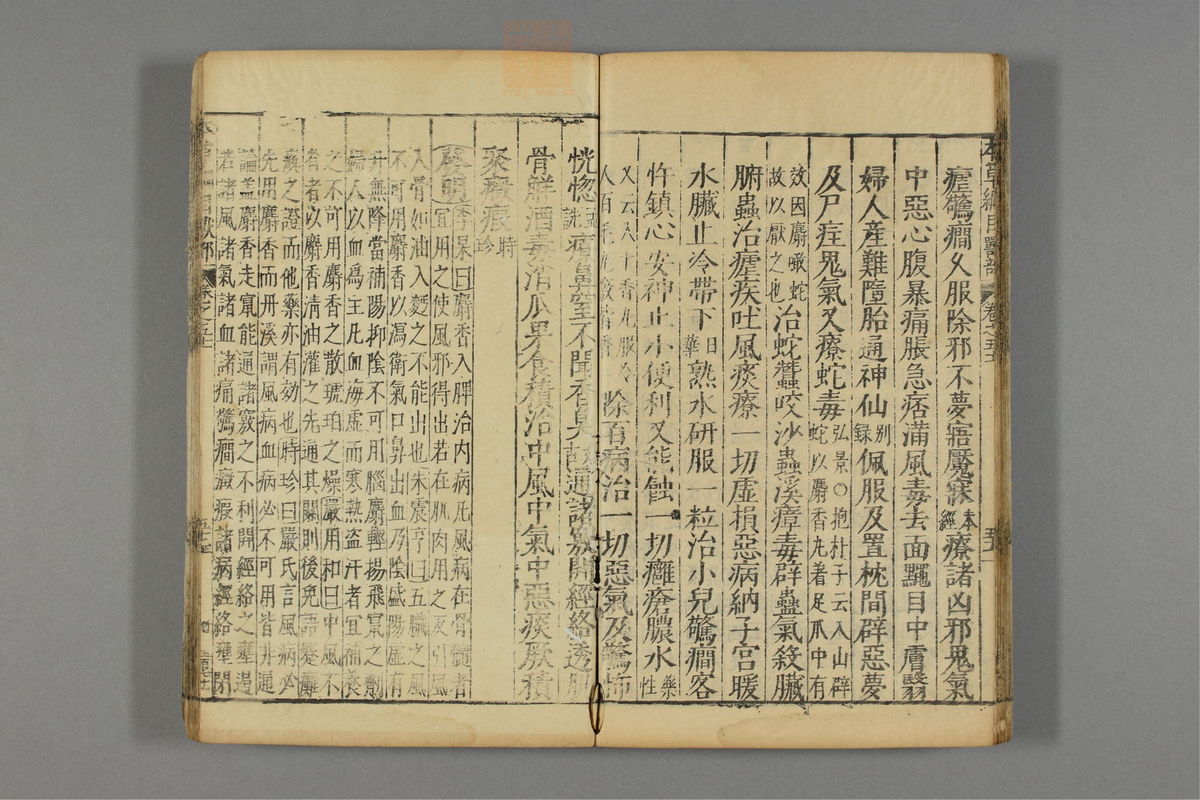 本草綱目獸部 卷之五十一
瘧驚癎久服除邪不夢寤魘寐本經療諸凶邪鬼氣
中惡心腹暴痛脹急痞滿風毒去面䵟目中膚翳
婦人産難墮胎通神仙别録佩服及置枕間辟惡夢
及尸疰鬼氣又療蛇毒弘景○抱朴子云入山辟蛇以麝香丸着足爪中有
效因麝噉蛇故以厭之也治蛇蠶咬沙蝨溪瘴毒辟蠱氣殺臟
腑蟲治瘧疾吐風痰療一切虚損惡病納子宫暖
水臟止冷帶下日華熟水研服一粒治小兒驚癎客
忤鎮心安神止小便利又能蝕一切癰瘡膿水藥性
又云入十香丸服令人百毛九竅皆香除百病治一切惡氣及驚怖
恍惚孟詵療鼻窒不聞香臭好古通諸竅開經絡透肌
骨解酒毒消瓜果食積治中風中氣中惡痰厥積
聚癥瘕時珍
發明李杲曰麝香入脾治内病凡風病在骨髓者
宜用之使風邪得出若在肌肉用之反引風
入骨如油入麪之不能出也朱震亨曰五臟之風
不可用麝香以瀉衛氣口鼻出血乃陰盛陽虚有
升無降當補陽抑陰不可用腦麝輕揚飛竄之劑
婦人以血爲主凡血海虚而寒熱盗汗者宜補養
之不可用麝香之散琥珀之燥嚴用和曰中風不
省者以麝香清油灌之先通其關則後免語蹇癱
瘓之證而他藥亦有効也時珍曰嚴氏言風病必
先用麝香而丹溪謂風病血病必不可用皆非通
論盖麝香走竄能通諸竅之不利開經絡之壅遏
若諸風諸氣諸血諸痛驚癎癥瘕諸病經絡壅閉